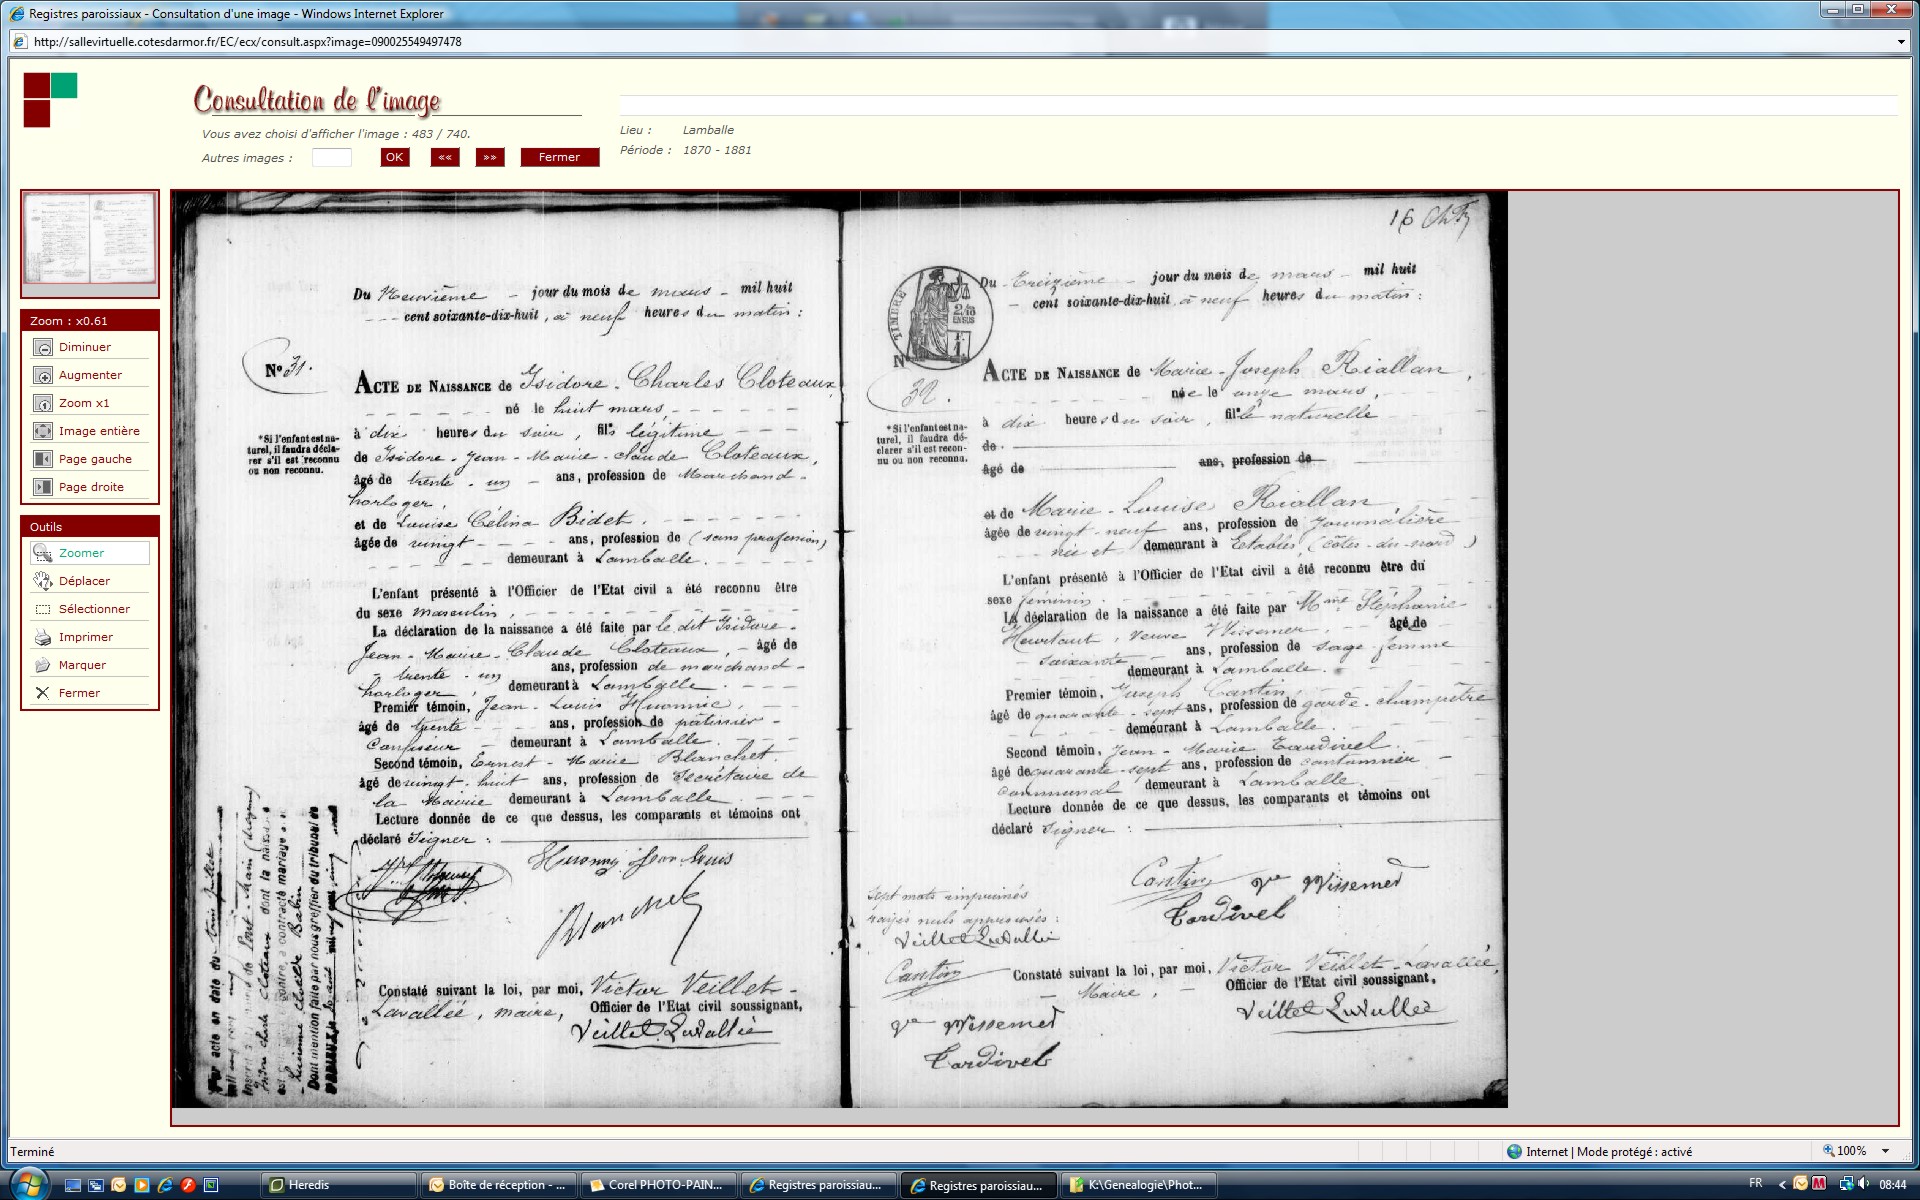 Registres paroissiaux - Consultation d'une image - Windows Internet Explorer
http://sallevirtuelle.cotesdarmor.fr/EC/ecx/consult.aspx?image=090025549497478
Consultation de l'image
Vous avez choisi d'afficher l'image : 483 / 740.
Autres images :
OK
««
»»
Fermer
Lieu : Lamballe
Période : 1870 - 1881
Zoom : x0.61
Diminuer
Augmenter
Zoom x1
Image entière
Page gauche
Page droite
Outils
Zoomer
Déplacer
Sélectionner
Imprimer
Marquer
Fermer
Du Neuvième - jour du mois de mars - mil huit
cent soixante-dix-huit, à neuf heures du matin :
N° 31.
ACTE DE NAISSANCE de Isidore - Charles Cloteaux
né le huit mars,
à dix heures du soir, fils légitime
*Si l'enfant est na-
turel, il faudra décla-
rer s'il est reconnu
ou non reconnu.
de Isidore - Jean - Marie - Claude Cloteaux,
âgé de trente - un - ans, profession de Marchand -
horloger,
et de Louise Célina Bidet.
âgée de vingt ans, profession de (sans profession)
demeurant à Lamballe.
L'enfant présenté à l'Officier de l'Etat civil a été reconnu être
du sexe masculin,
La déclaration de la naissance a été faite par le dit Isidore -
Jean - Marie - Claude Cloteaux, - âgé de
trente - un ans, profession de marchand -
horloger, demeurant à Lamballe.
Premier témoin, Jean - Louis
âgé de trente ans, profession de pâtissier -
Confiseur demeurant à Lamballe.
Second témoin, Ernest - Marie Blanchet.
âgé de vingt - huit ans, profession de Secrétaire de
la Mairie demeurant à Lamballe.
Lecture donnée de ce que dessus, les comparants et témoins ont
déclaré Signer :
Jean Louis
Blanchet
Constaté suivant la loi, par moi, Victor Veillet -
Lavallée, maire, Officier de l'Etat civil soussigné,
Veillet Lavallée
Par acte en date du
dont la naiss
contracté mariage
Dont mention faite par nous greffier du tribunal de
16
TIMBRE
2/10
EN SUS
Du Treizième - jour du mois de mars - mil huit
- cent soixante-dix-huit, à neuf heures du matin :
N°
32.
ACTE DE NAISSANCE de Marie - Joseph Riallan,
née le onze mars,
à dix heures du soir, fille naturelle
*Si l'enfant est na-
turel, il faudra dé-
clarer s'il est recon-
nu ou non reconnu.
de
âgé de ans, profession de
et de Marie - Louise Riallan
âgée de vingt - neuf ans, profession de Journalière
née et demeurant à Etables, (côtes - du - nord)
L'enfant présenté à l'Officier de l'Etat civil a été reconnu être du
sexe féminin.
La déclaration de la naissance a été faite par Mme Stéphanie
Heurtaut, veuve Wissemer, âgé de
soixante ans, profession de sage femme
demeurant à Lamballe.
Premier témoin, Joseph Cantin,
âgé de quarante - sept ans, profession de garde - champêtre
demeurant à Lamballe.
Second témoin, Jean - Marie Tardivel.
âgé de quarante - sept ans, profession de cantonnier -
Communal demeurant à Lamballe.
Lecture donnée de ce que dessus, les comparants et témoins ont
déclaré Signer :
Cantin
Vve Wissemer
Tardivel
Sept mots imprimés
rayés nuls approuvés :
Veillet Lavallée
Cantin
Constaté suivant la loi, par moi, Victor Veillet - Lavallée,
- Maire, - Officier de l'Etat civil soussignant,
Veillet Lavallée
Vve Wissemer
Tardivel
Terminé
Internet | Mode protégé : activé
100%
Heredis
Boîte de réception - ...
Corel PHOTO-PAIN...
Registres paroissiau...
Registres paroissiau...
K:\Genealogie\Phot...
FR
08:44